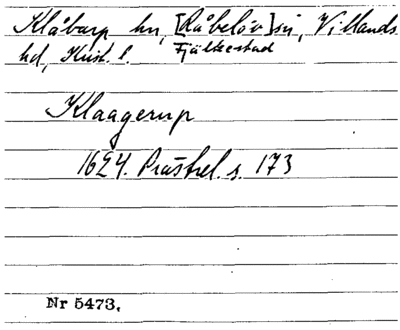 Klåbarp hn, [Råbelöv]sn, Villands
Fjälkestad
hd, Krist. l.
Klaagerup
1624. Prästrel. s. 173
Nr 5473.